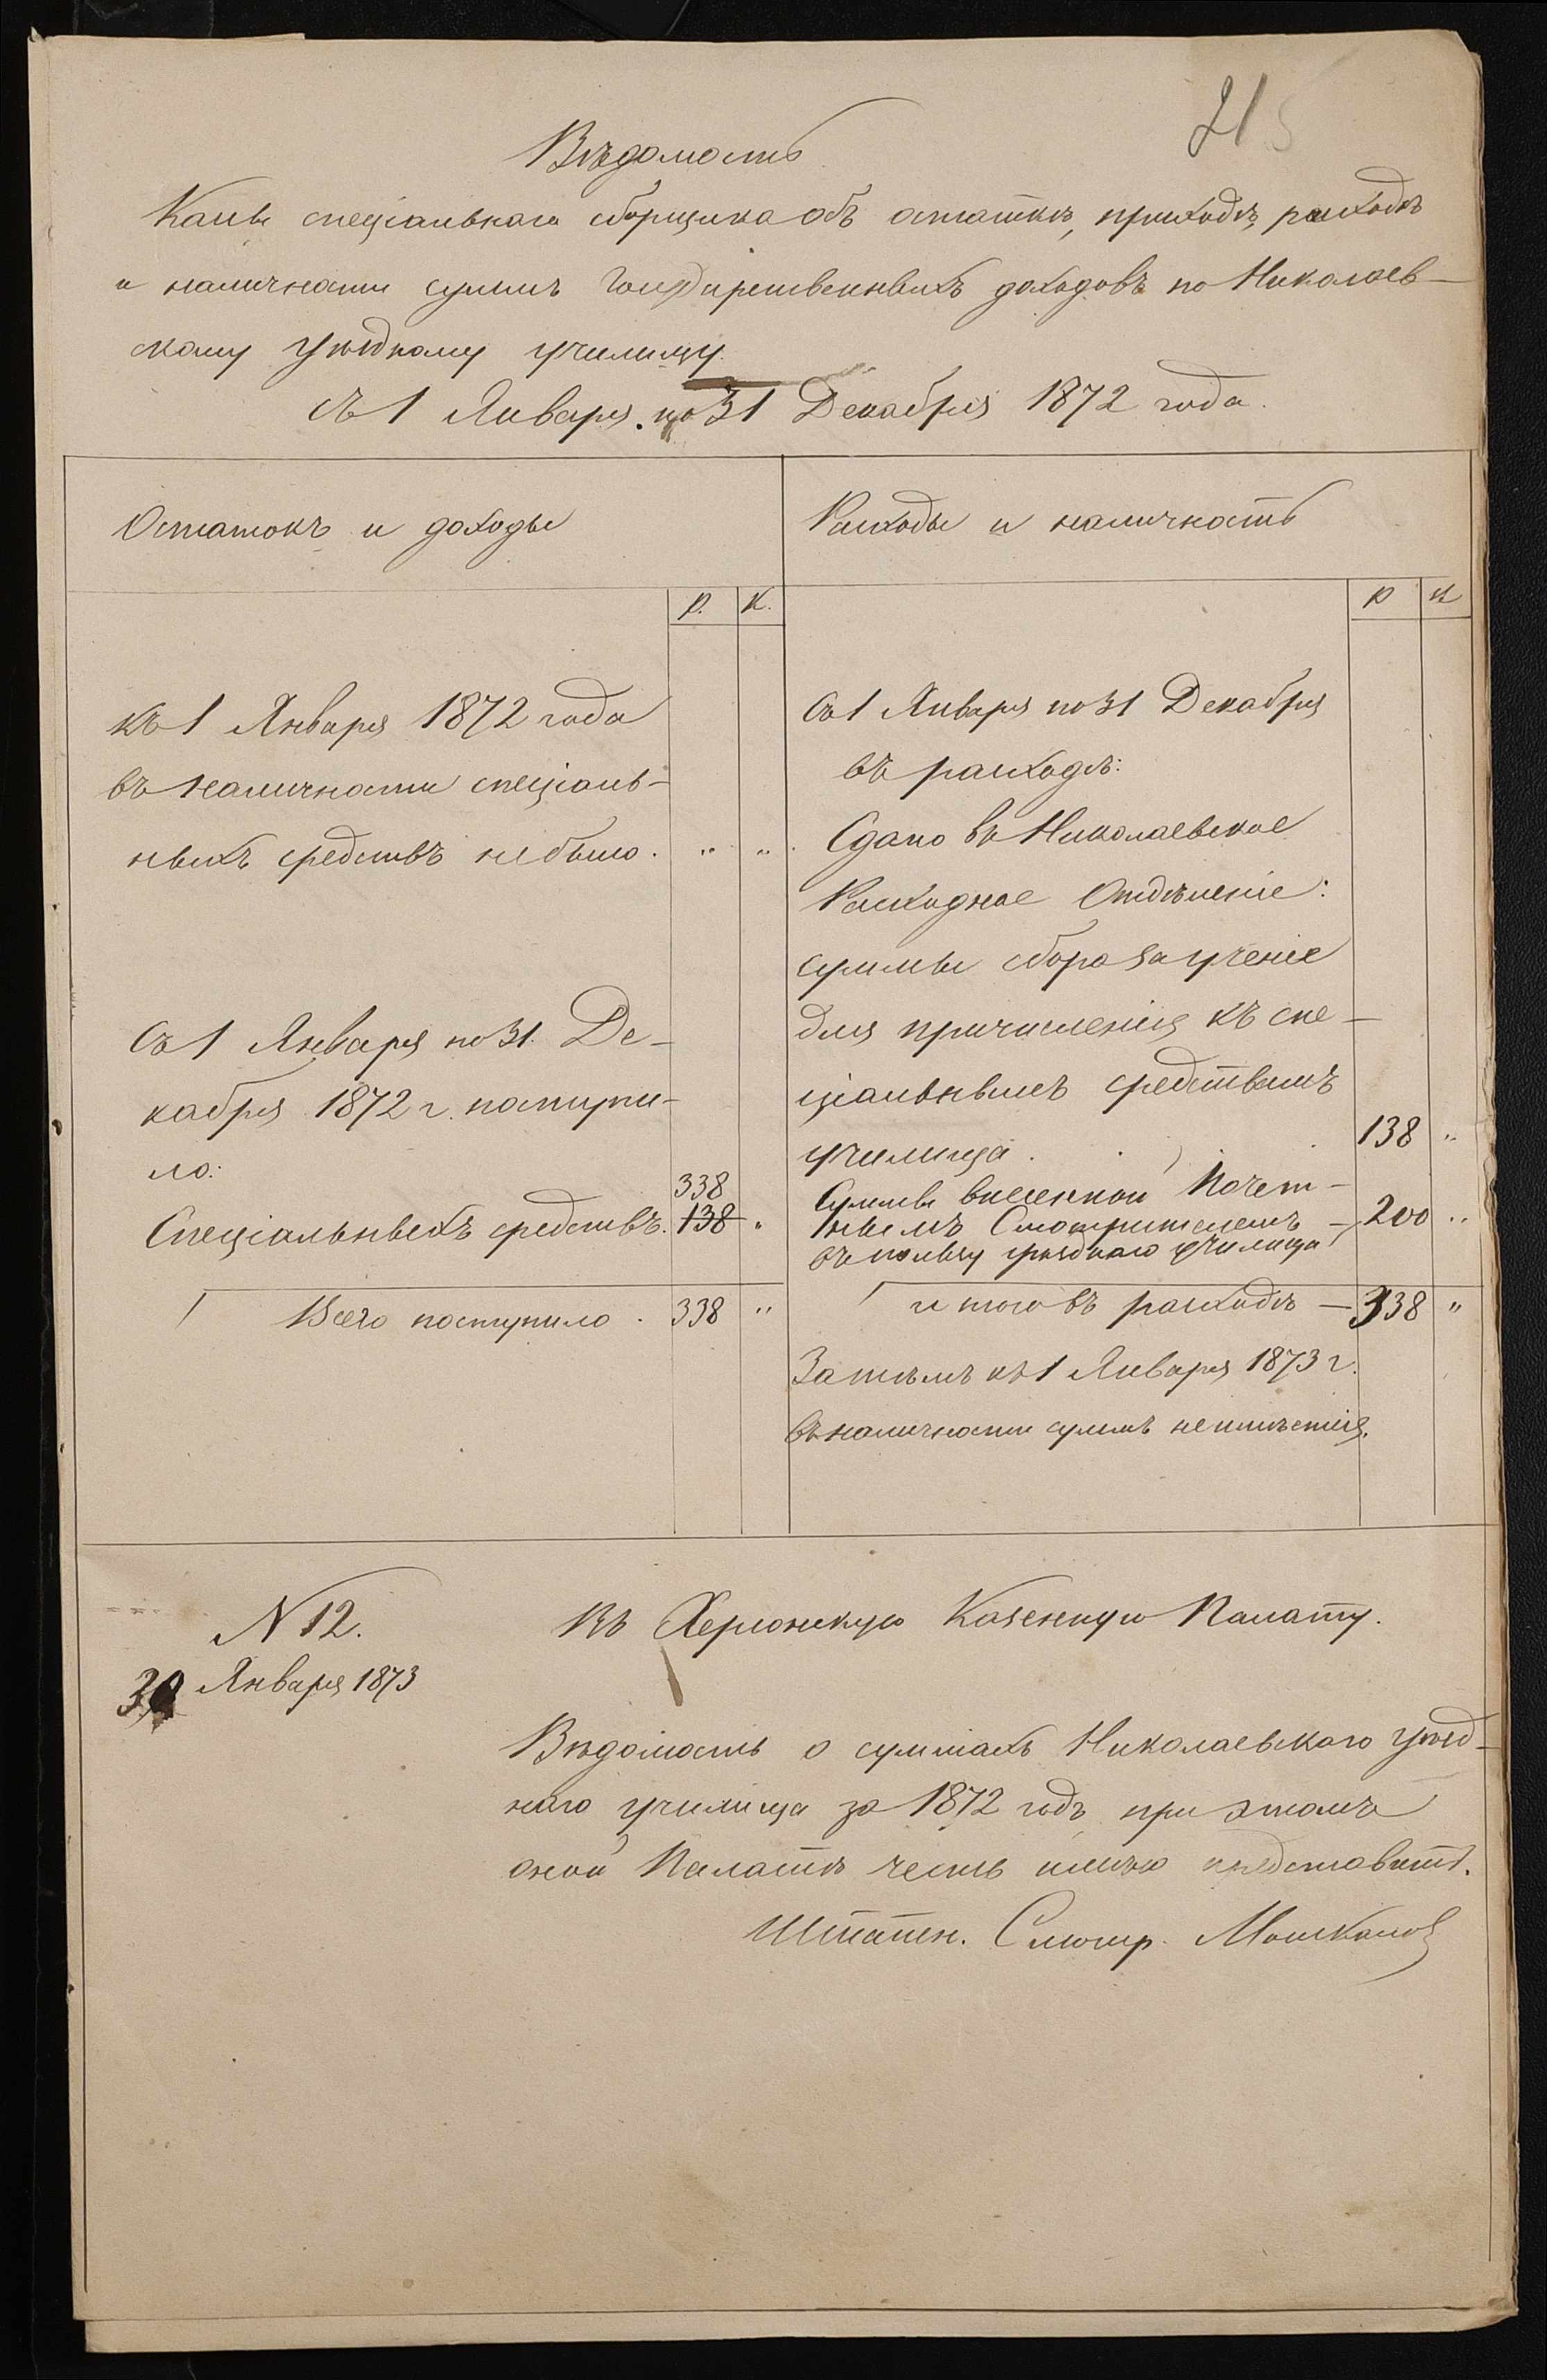 21
Вѣдомость
Кассы спеціальнаго сборщика объ остаткѣ, приходѣ, расходѣ
и наличности суммъ Государственныхъ доходовъ по Николаев-
скому Уѣздному училищу
съ 1 Января по 31 Декабря 1872 года.
Остатокъ и доходы
Р. К.
къ 1 Января 1872 года
въ наличности спеціаль-
ныхъ средствъ не было. " "
Съ 1 Января по 31 Де-
кабря 1872 г. поступи-
ло:
338
Спеціальныхъ средствъ. 138 "
Всего поступило . 338 "
Расходы и наличность
Р К
Съ 1 Января по 31 Декабря
въ расходѣ:
Сдано въ Николаевское
Расходное Отдѣленіе:
суммы сбора за ученіе
для причисленія къ спе-
ціальнымъ средствамъ
училища . . 138 "
Суммы внесенной Почет-
нымъ Смотрителемъ - 200 "
въ пользу уѣзднаго училища
итого въ расходѣ - 338 "
Затѣмъ къ 1 Января 1873 г.
въ наличности суммъ не имѣется.
N 12.
30 Января 1873
Въ Херсонскую Казенную Палату.
Вѣдомость о суммахъ Николаевскаго уѣзд-
наго училища за 1872 годъ при этомъ
оной Палатѣ честь имѣю представить.
Штатн. Смотр.